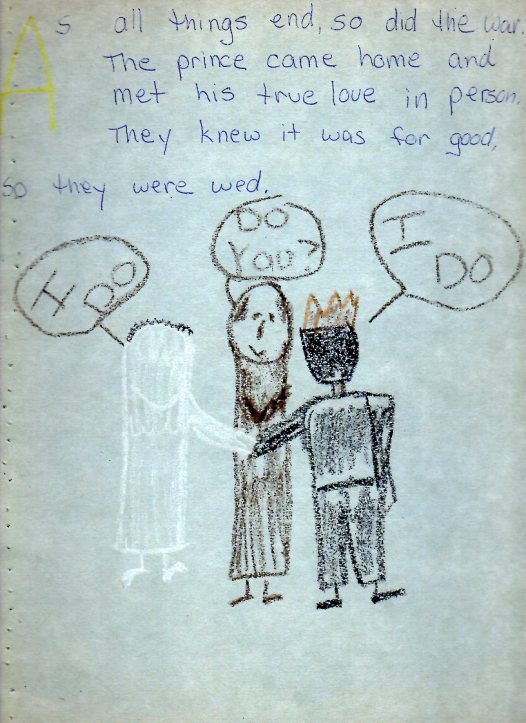 As all things end, so did the war.
The prince came home and
met his true love in person.
They knew it was for good,
so they were wed.
DO
YOU?
I DO
I
DO